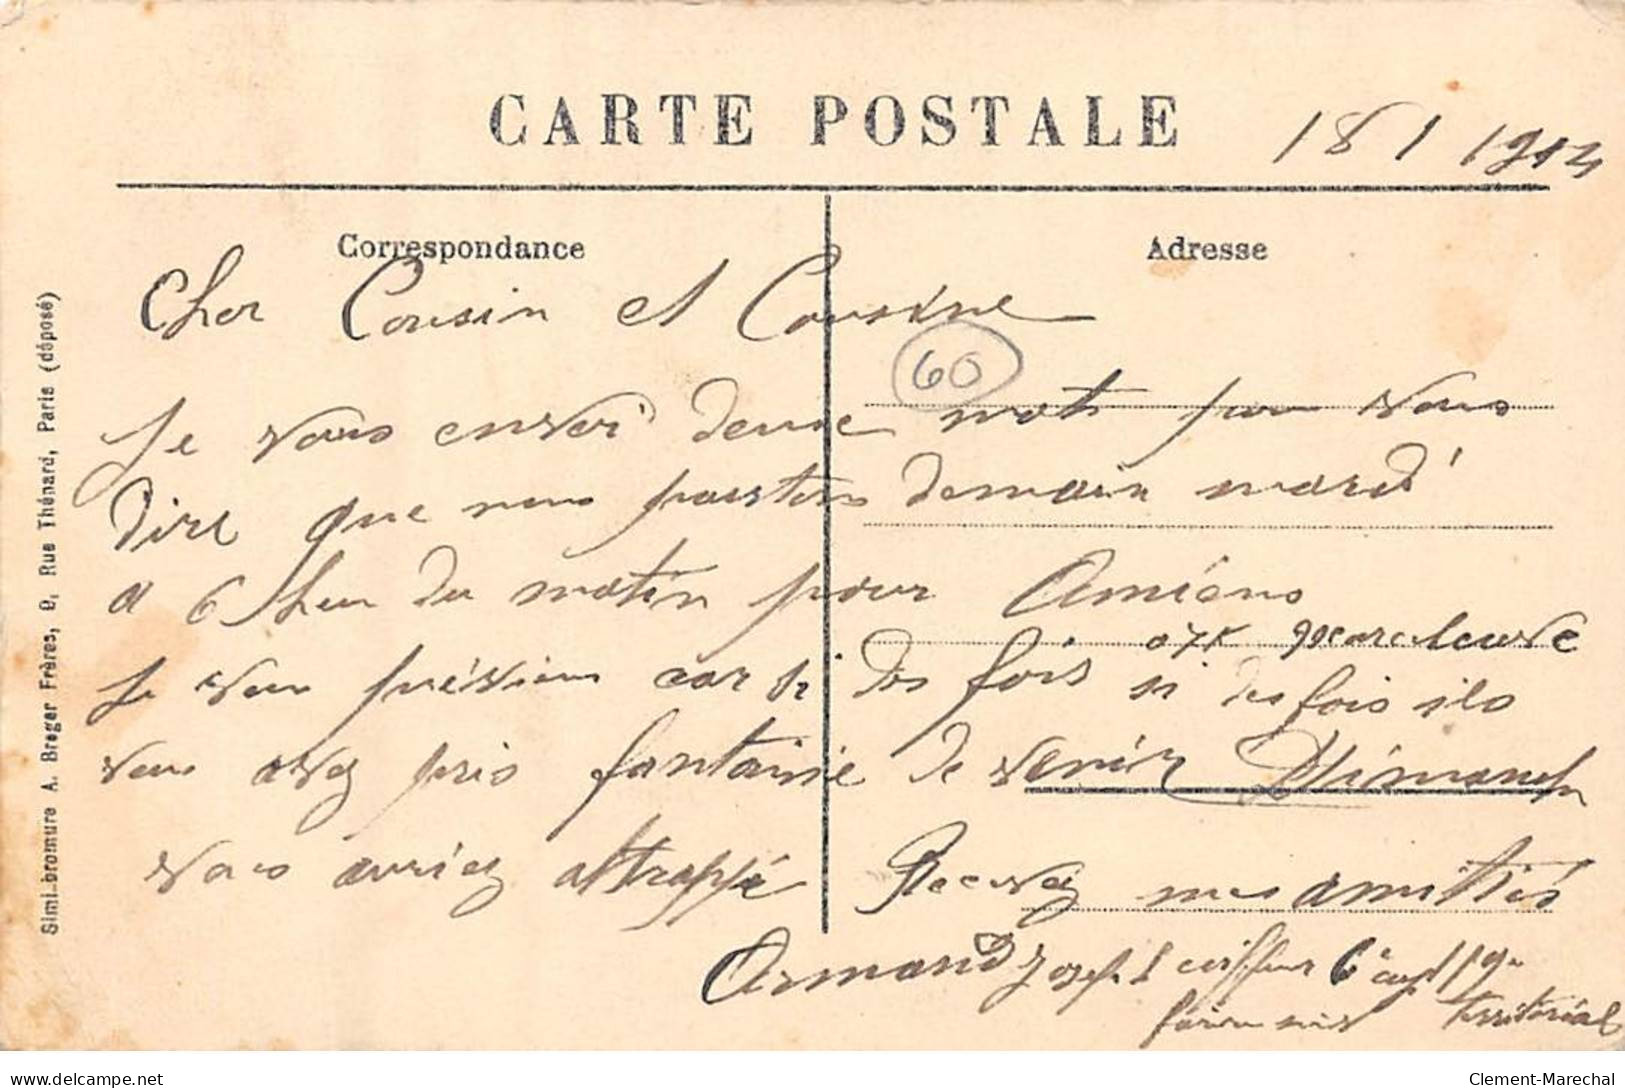 CARTE POSTALE
18 1 1914
Correspondance
Adresse
Cher Cousin et Cousine
60
Je vous envoi deuse mots pour vous
dire que nous partons demain mardi
a 6 heur du matin pour Amiéns
je vous présviens car si des fois si des fois ils
vous avez pris fantaisie de venir Dimanch
vous auriez attrappé Recevez mes amitiés
Armand Joseph coiffeur 6e 119e
territorial
Simi-bromure A. Breger Frères, 9, Rue Thénard, Paris (déposé)
delcampe.net
Clement-Marechal